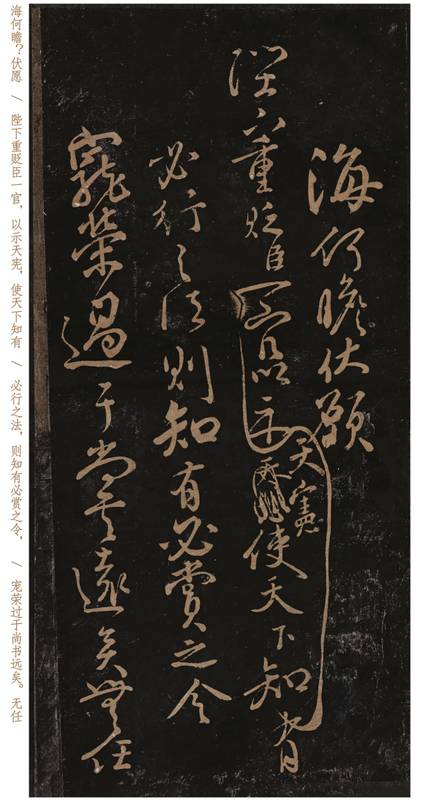 海何瞻？伏愿 / 陛下重贬臣一官，以示天宪，使天下知有 / 必行之法，则知有必赏之令， / 宠荣过于尚书远矣。无任
海何瞻伏願
陛下重貶臣一官以示天憲使天下知有
必行之法則知有必賞之令
寵榮過于尚書遠矣無任